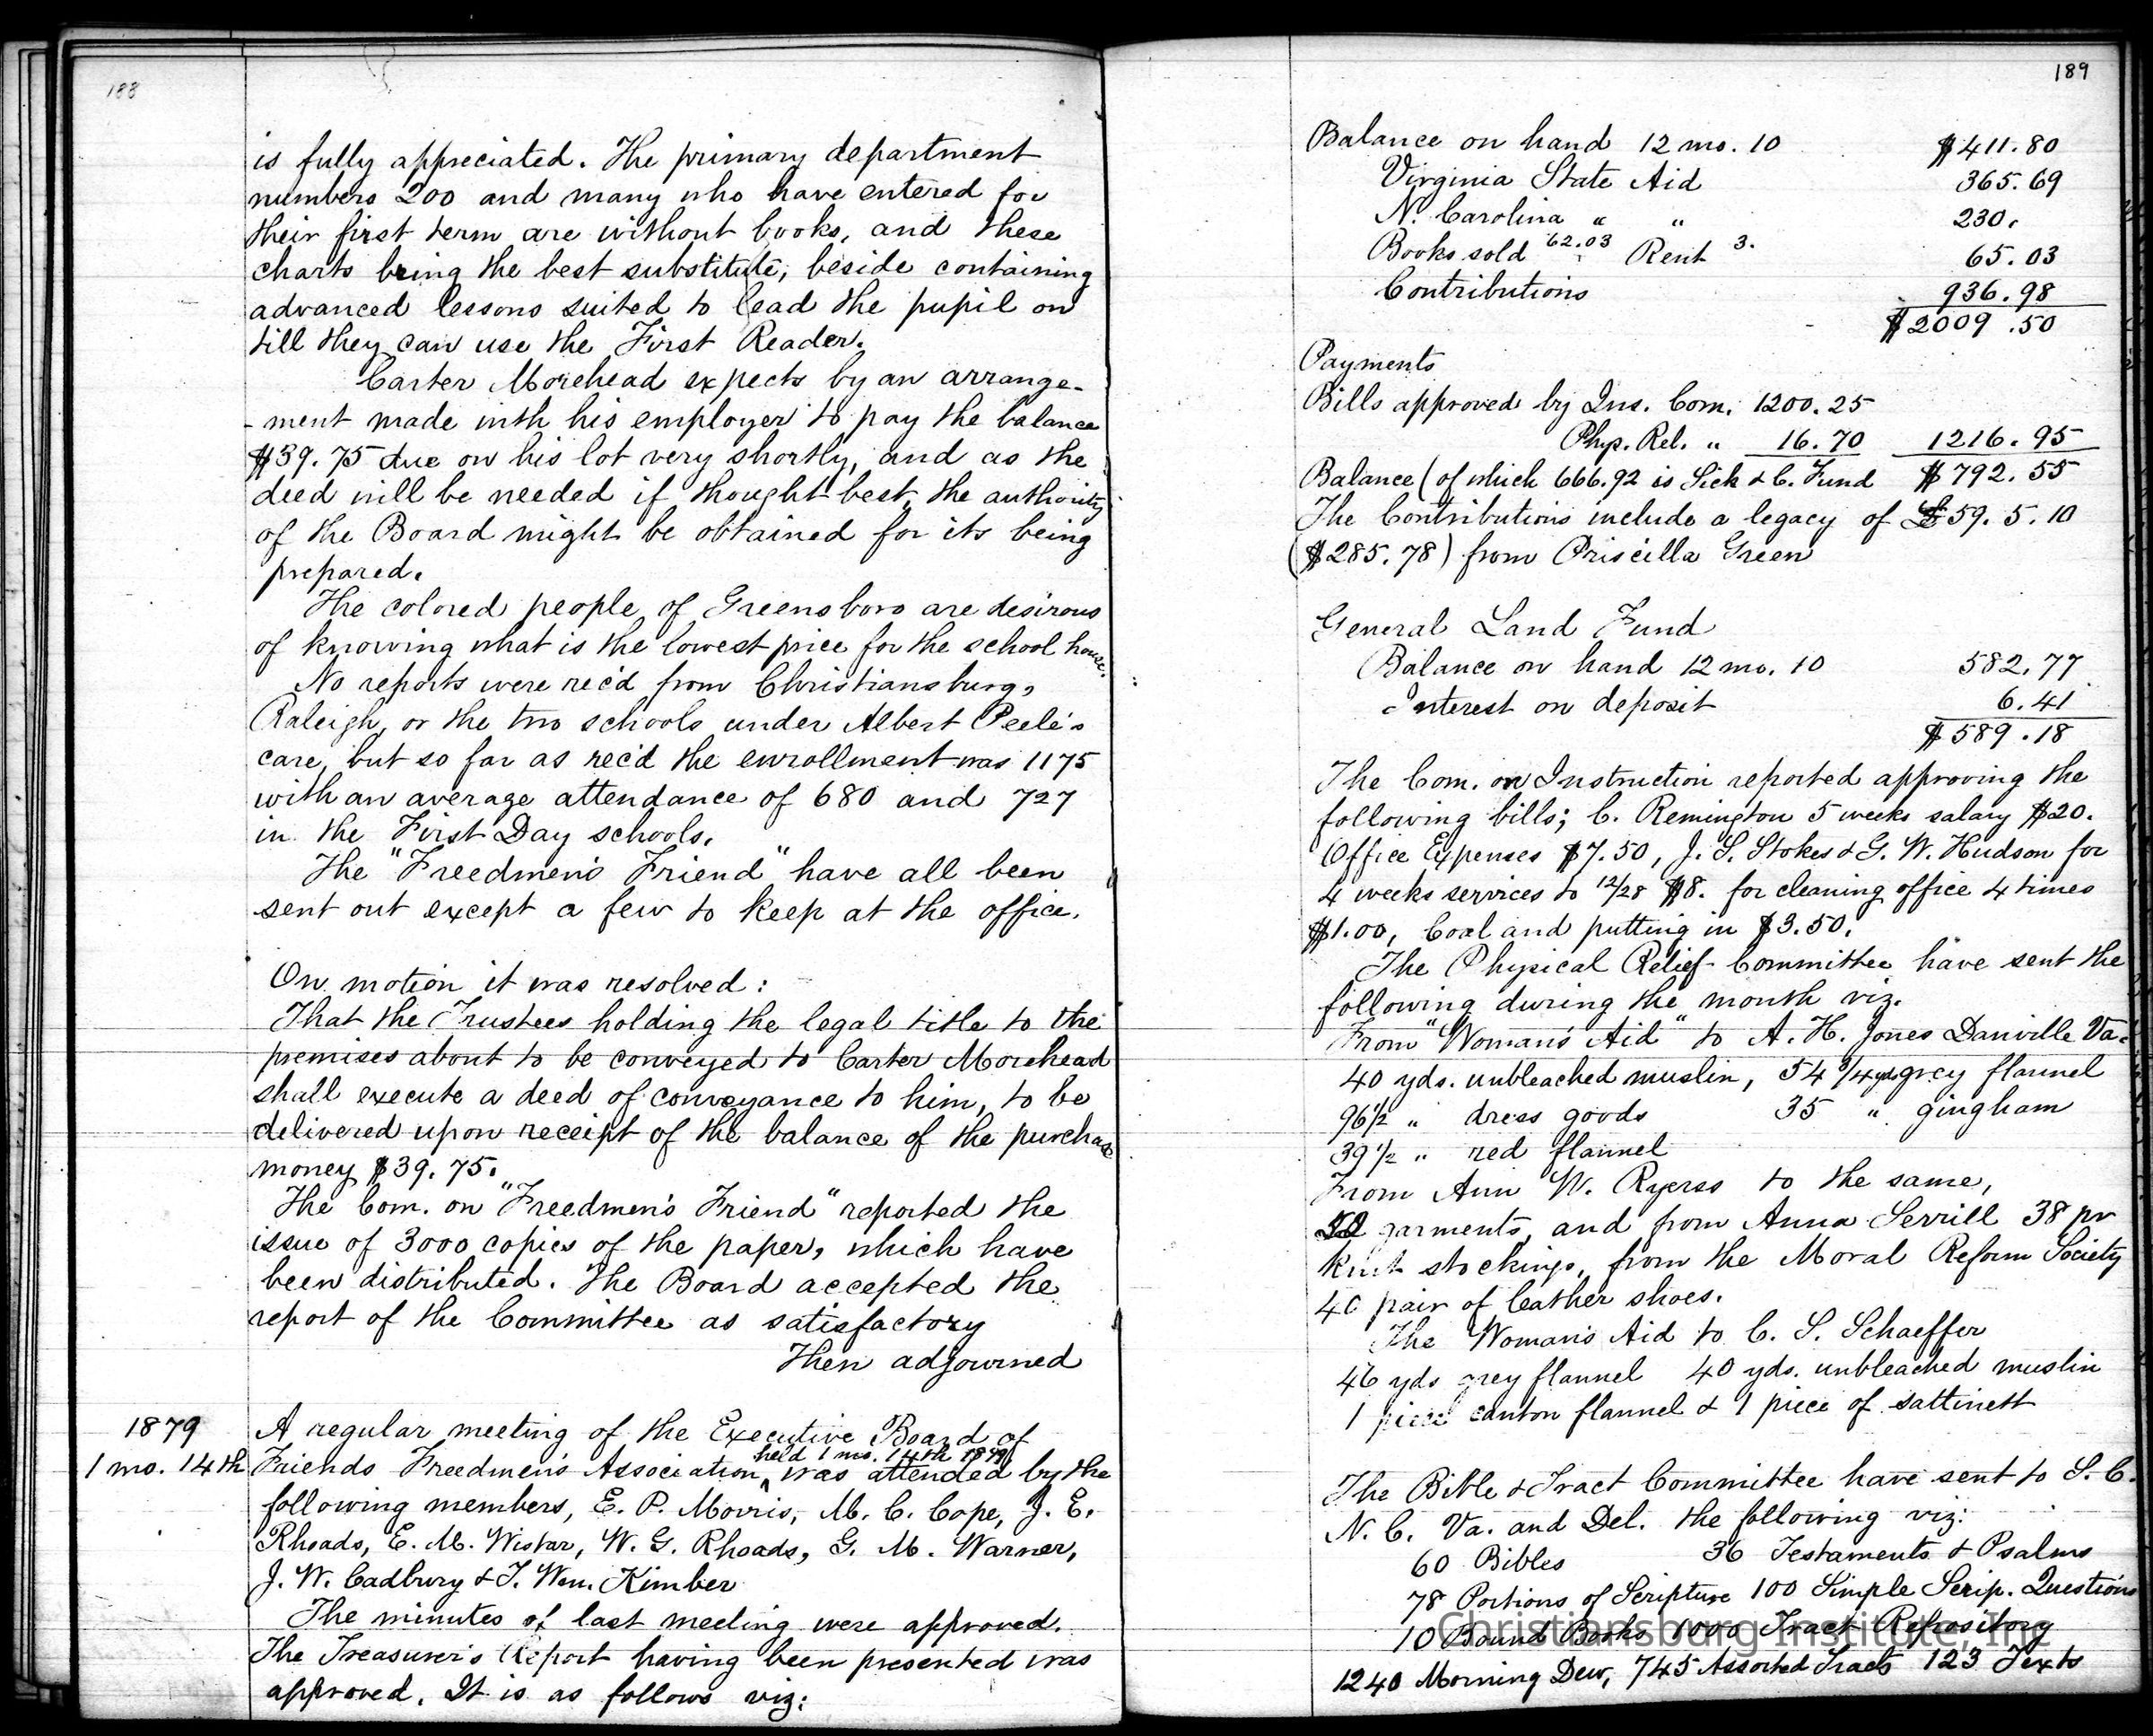 188
is fully appreciated. The primary department
numbers 200 and many who have entered for
their first term are without books, and these
charts being the best substitute, beside containing
advanced lessons suited to lead the pupil on
till they can use the First Reader.
Carter Morehead expects by an arrange-
-ment made with his employer to pay the balance
$39.75 due on his lot very shortly, and as the
deed will be needed if thought best, the authority
of the Board might be obtained for its being
prepared.
The colored people of Greensboro are desirous
of knowing what is the lowest price for the school house.
No reports were rec'd from Christiansburg,
Raleigh, or the two schools under Albert Peele's
care, but so far as rec'd the enrollment was 1175
with an average attendance of 680 and 727
in the First Day schools.
The "Freedmen's Friend" have all been
sent out except a few to keep at the office.
On motion it was resolved:
That the Trustees holding the legal title to the
premises about to be conveyed to Carter Morehead
shall execute a deed of conveyance to him, to be
delivered upon receipt of the balance of the purchase
money $39.75.
The Com. on "Freedmen's Friend" reported the
issue of 3000 copies of the paper, which have
been distributed. The Board accepted the
report of the Committee as satisfactory
Then adjourned
1879
1 mo. 14th
A regular meeting of the Executive Board of
held 1 mo. 14th 1879
Friends Freedmen's Association, was attended by the
following members, E. P. Morris, M. C. Cope, J. E.
Rhoads, E. M. Wistar, W. G. Rhoads, G. M. Warner,
J. W. Cadbury & T. Wm. Kimber
The minutes of last meeting were approved.
The Treasurer's Report having been presented was
approved. It is as follows viz:
189
Balance on hand 12 mo. 10 $411.80
Virginia State Aid 365.69
N. Carolina " " 230.
Books sold 62.03 Rent 3. 65.03
Contributions 936.98
$2009.50
Payments
Bills approved by Ins. Com. 1200.25
Phys. Rel. " 16.70 1216.95
Balance (of which 666.92 is Sick & C. Fund $792.55
The Contributions include a legacy of £59.5.10
($285.78) from Priscilla Green
General Land Fund
Balance on hand 12 mo. 10 582.77
Interest on deposit 6.41
$589.18
The Com. on Instruction reported approving the
following bills; C. Remington 5 weeks salary $20.
Office Expenses $7.50, J. S. Stokes & G. W. Hudson for
4 weeks services to 12/28 $8. for cleaning office 4 times
$1.00, Coal and putting in $3.50.
The Physical Relief Committee have sent the
following during the month viz.
From "Woman's Aid" to A. H. Jones Danville Va.
40 yds. unbleached muslin, 54 3/4 yds grey flannel
96 1/2 " dress goods 35 " gingham
39 1/2 " red flannel
From Ann W. Ryerss to the same,
garments, and from Anna Serrill 38 pr
knit stockings, from the Moral Reform Society
40 pair of leather shoes.
The Woman's Aid to C. S. Schaeffer
46 yds grey flannel 40 yds. unbleached muslin
1 piece canton flannel & 1 piece of sattinett
The Bible & Tract Committee have sent to S. C.
N. C. Va. and Del. the following viz:
60 Bibles 36 Testaments & Psalms
78 Portions of Scripture 100 Simple Scrip. Questions
10 Bound Books 1000 Tract Repository
1240 Morning Dew, 745 Assorted Tracts 123 Texts
Christiansburg Institute, Inc